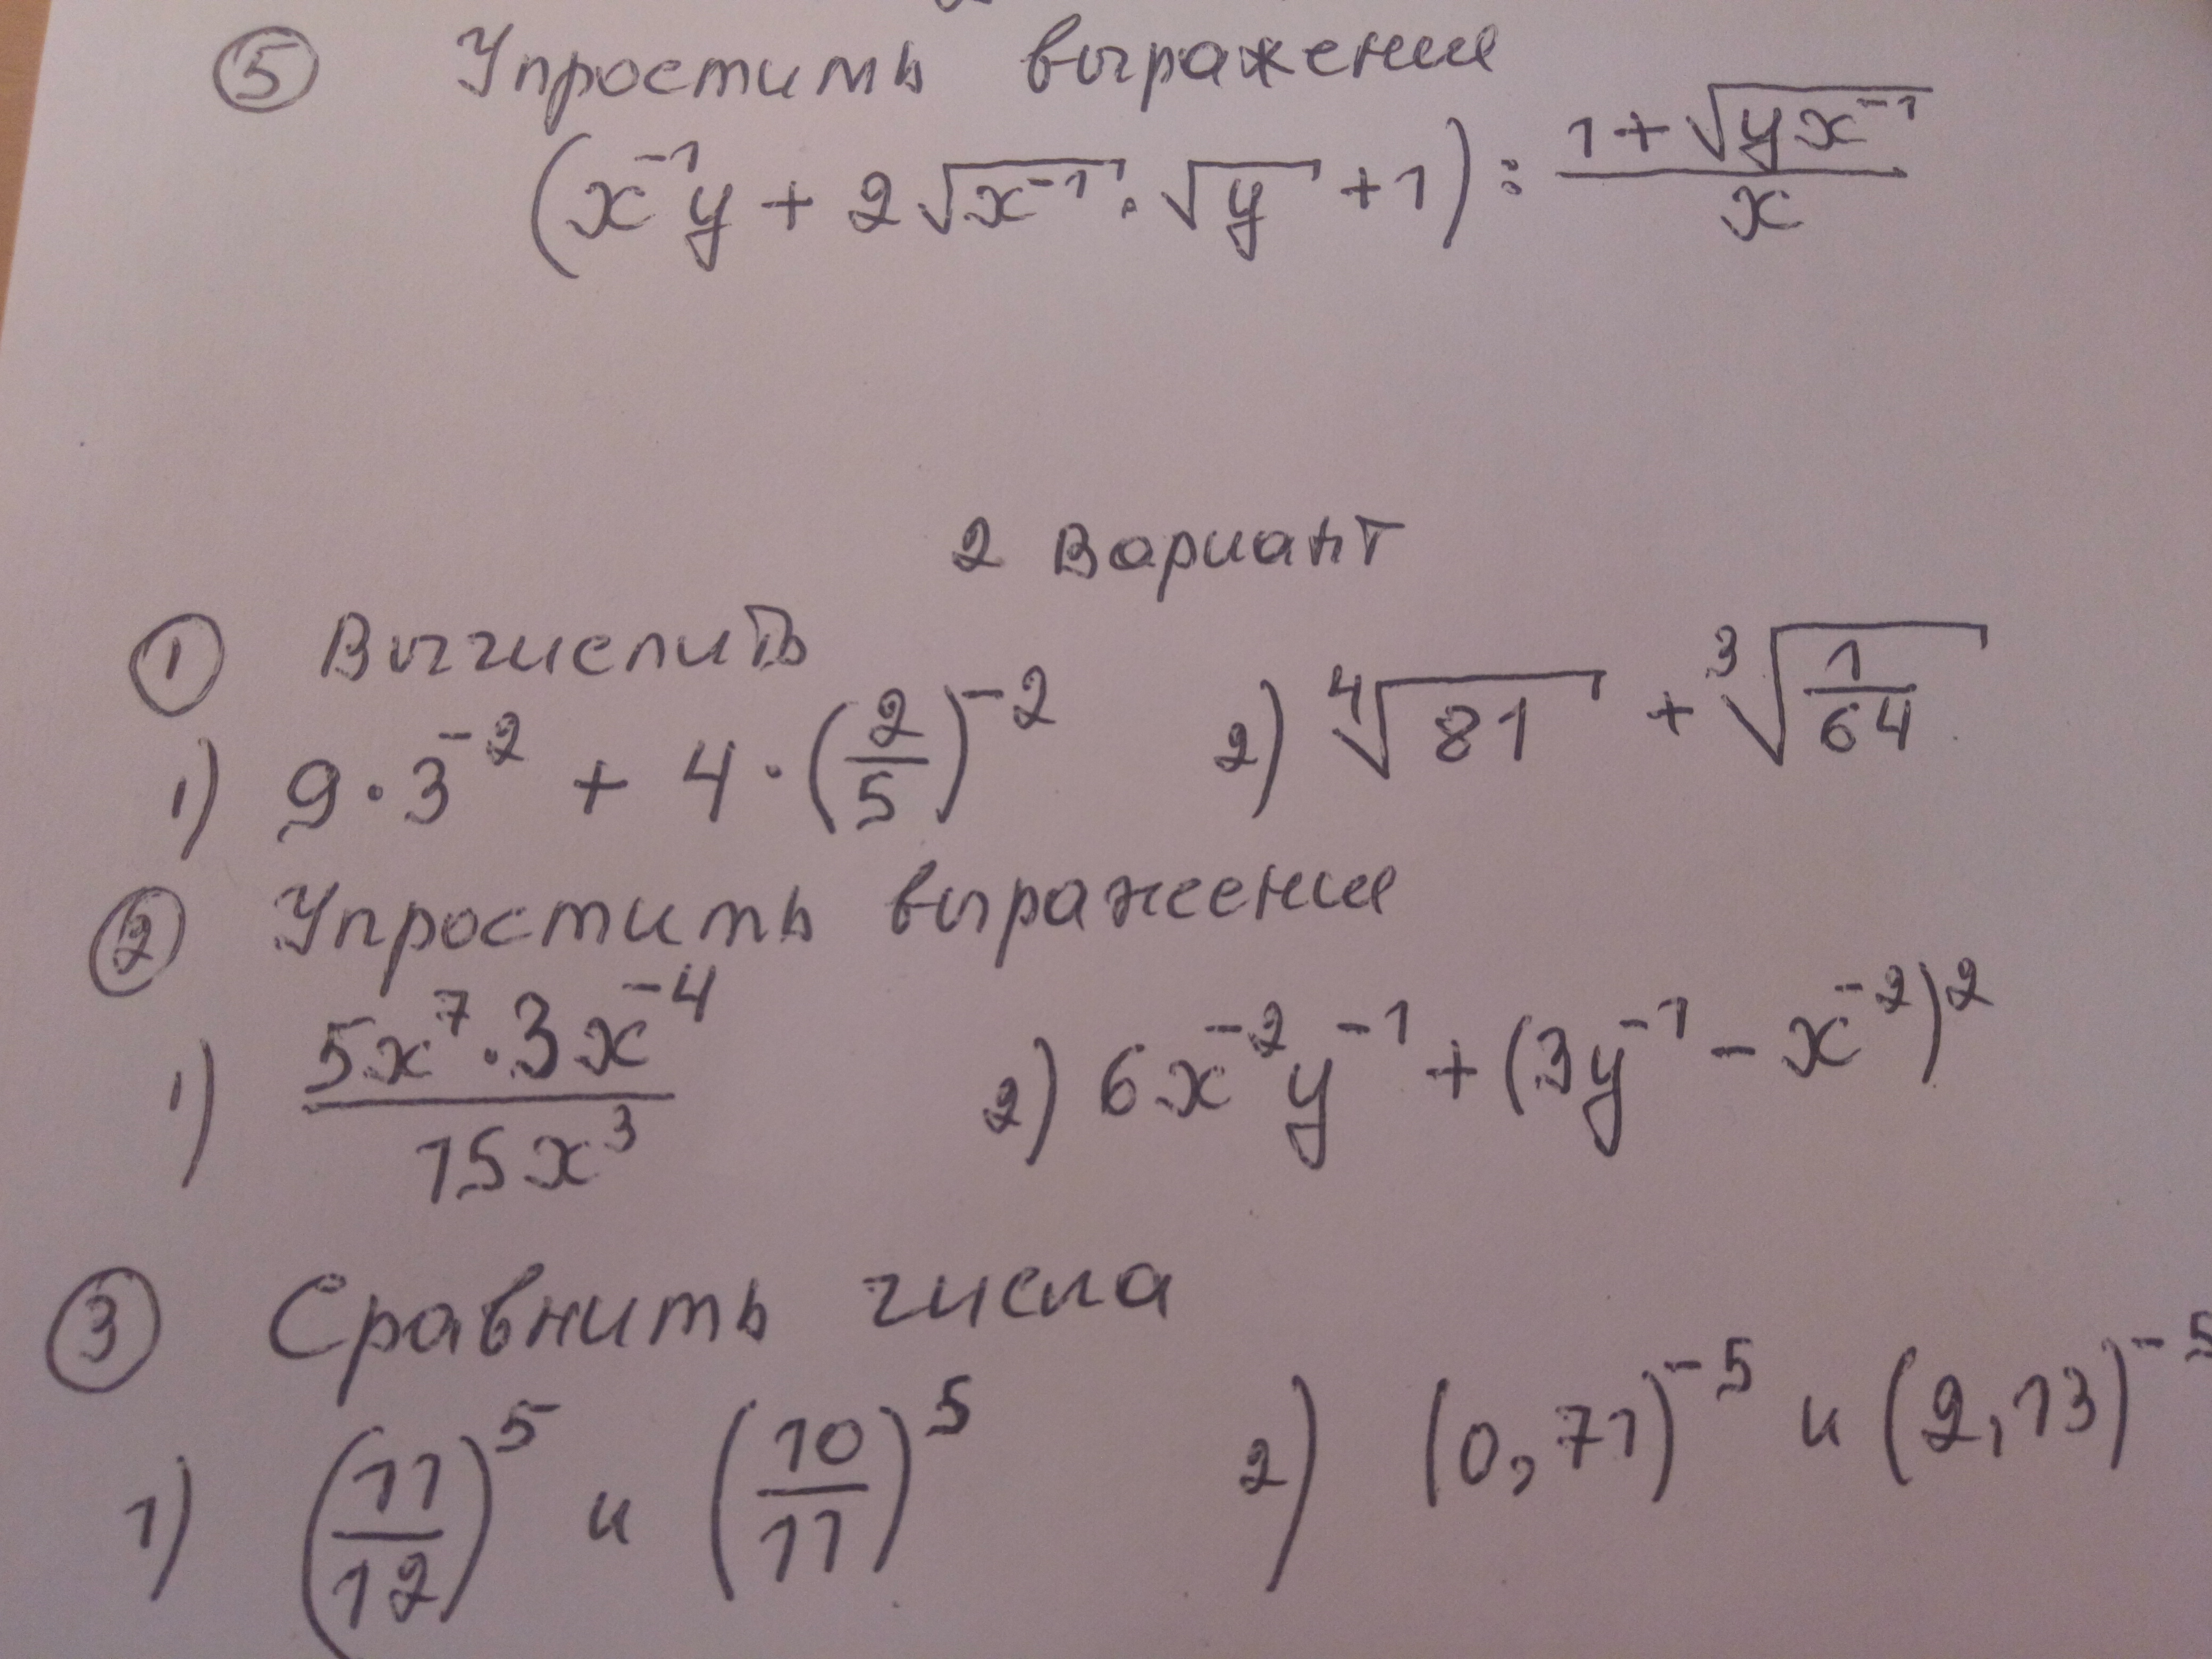 ⑤ Упростить выражение
(x⁻¹y + 2√x⁻¹ · √y + 1) : (1 + √(yx⁻¹))/x
2 Вариант
① Вычислить
1) 9 · 3⁻² + 4 · (2/5)⁻² 2) ⁴√81 + ³√(1/64)
② Упростить выражение
1) (5x⁷ · 3x⁻⁴)/(15x³) 2) 6x⁻²y⁻¹ + (3y⁻¹ − x⁻²)²
③ Сравнить числа
1) (11/12)⁵ и (10/11)⁵ 2) (0,71)⁻⁵ и (2,13)⁻⁵